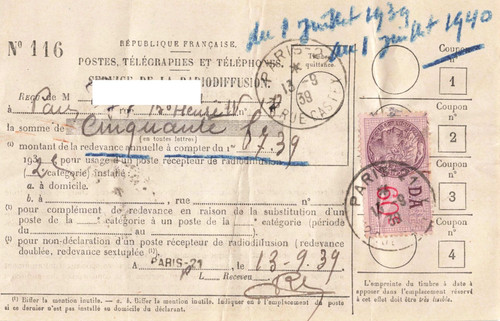 du 1 juillet 1939
au 1 juillet 1940
N° 116
RÉPUBLIQUE FRANÇAISE.
POSTES, TÉLÉGRAPHES ET TÉLÉPHONES.
SERVICE DE LA RADIODIFFUSION.
Timbre
quittance.
PARIS
13 -9
39
REÇU DE M
à Paris Henri IV
la somme de Cinquante
(en toutes lettres)
(¹) montant de la redevance annuelle à compter du 1er 8 7.39
193 pour usage d'un poste récepteur de radiodiffusion
(2e catégorie) installé :
a. à domicile.
b. à , rue n°
(¹) pour complément de redevance en raison de la substitution d'un
poste de la e catégorie à un poste de la e catégorie (période
du au ).
(¹) pour non-déclaration d'un poste récepteur de radiodiffusion (redevance
doublée, redevance sextuplée (¹).
A PARIS-21 , le 13-9.39
L Receveu
(¹) Biffer la mention inutile. — a. b. Biffer la mention inutile. Indiquer en b l'emplacement du poste
si ce dernier n'est pas installé au domicile du déclarant.
Coupon
n°
1
Coupon
n°
2
Coupon
n°
3
Coupon
n°
4
60
DA
PARIS 21
L'empreinte du timbre à date est à
apposer dans l'emplacement réservé
à cet effet doit être très lisible.